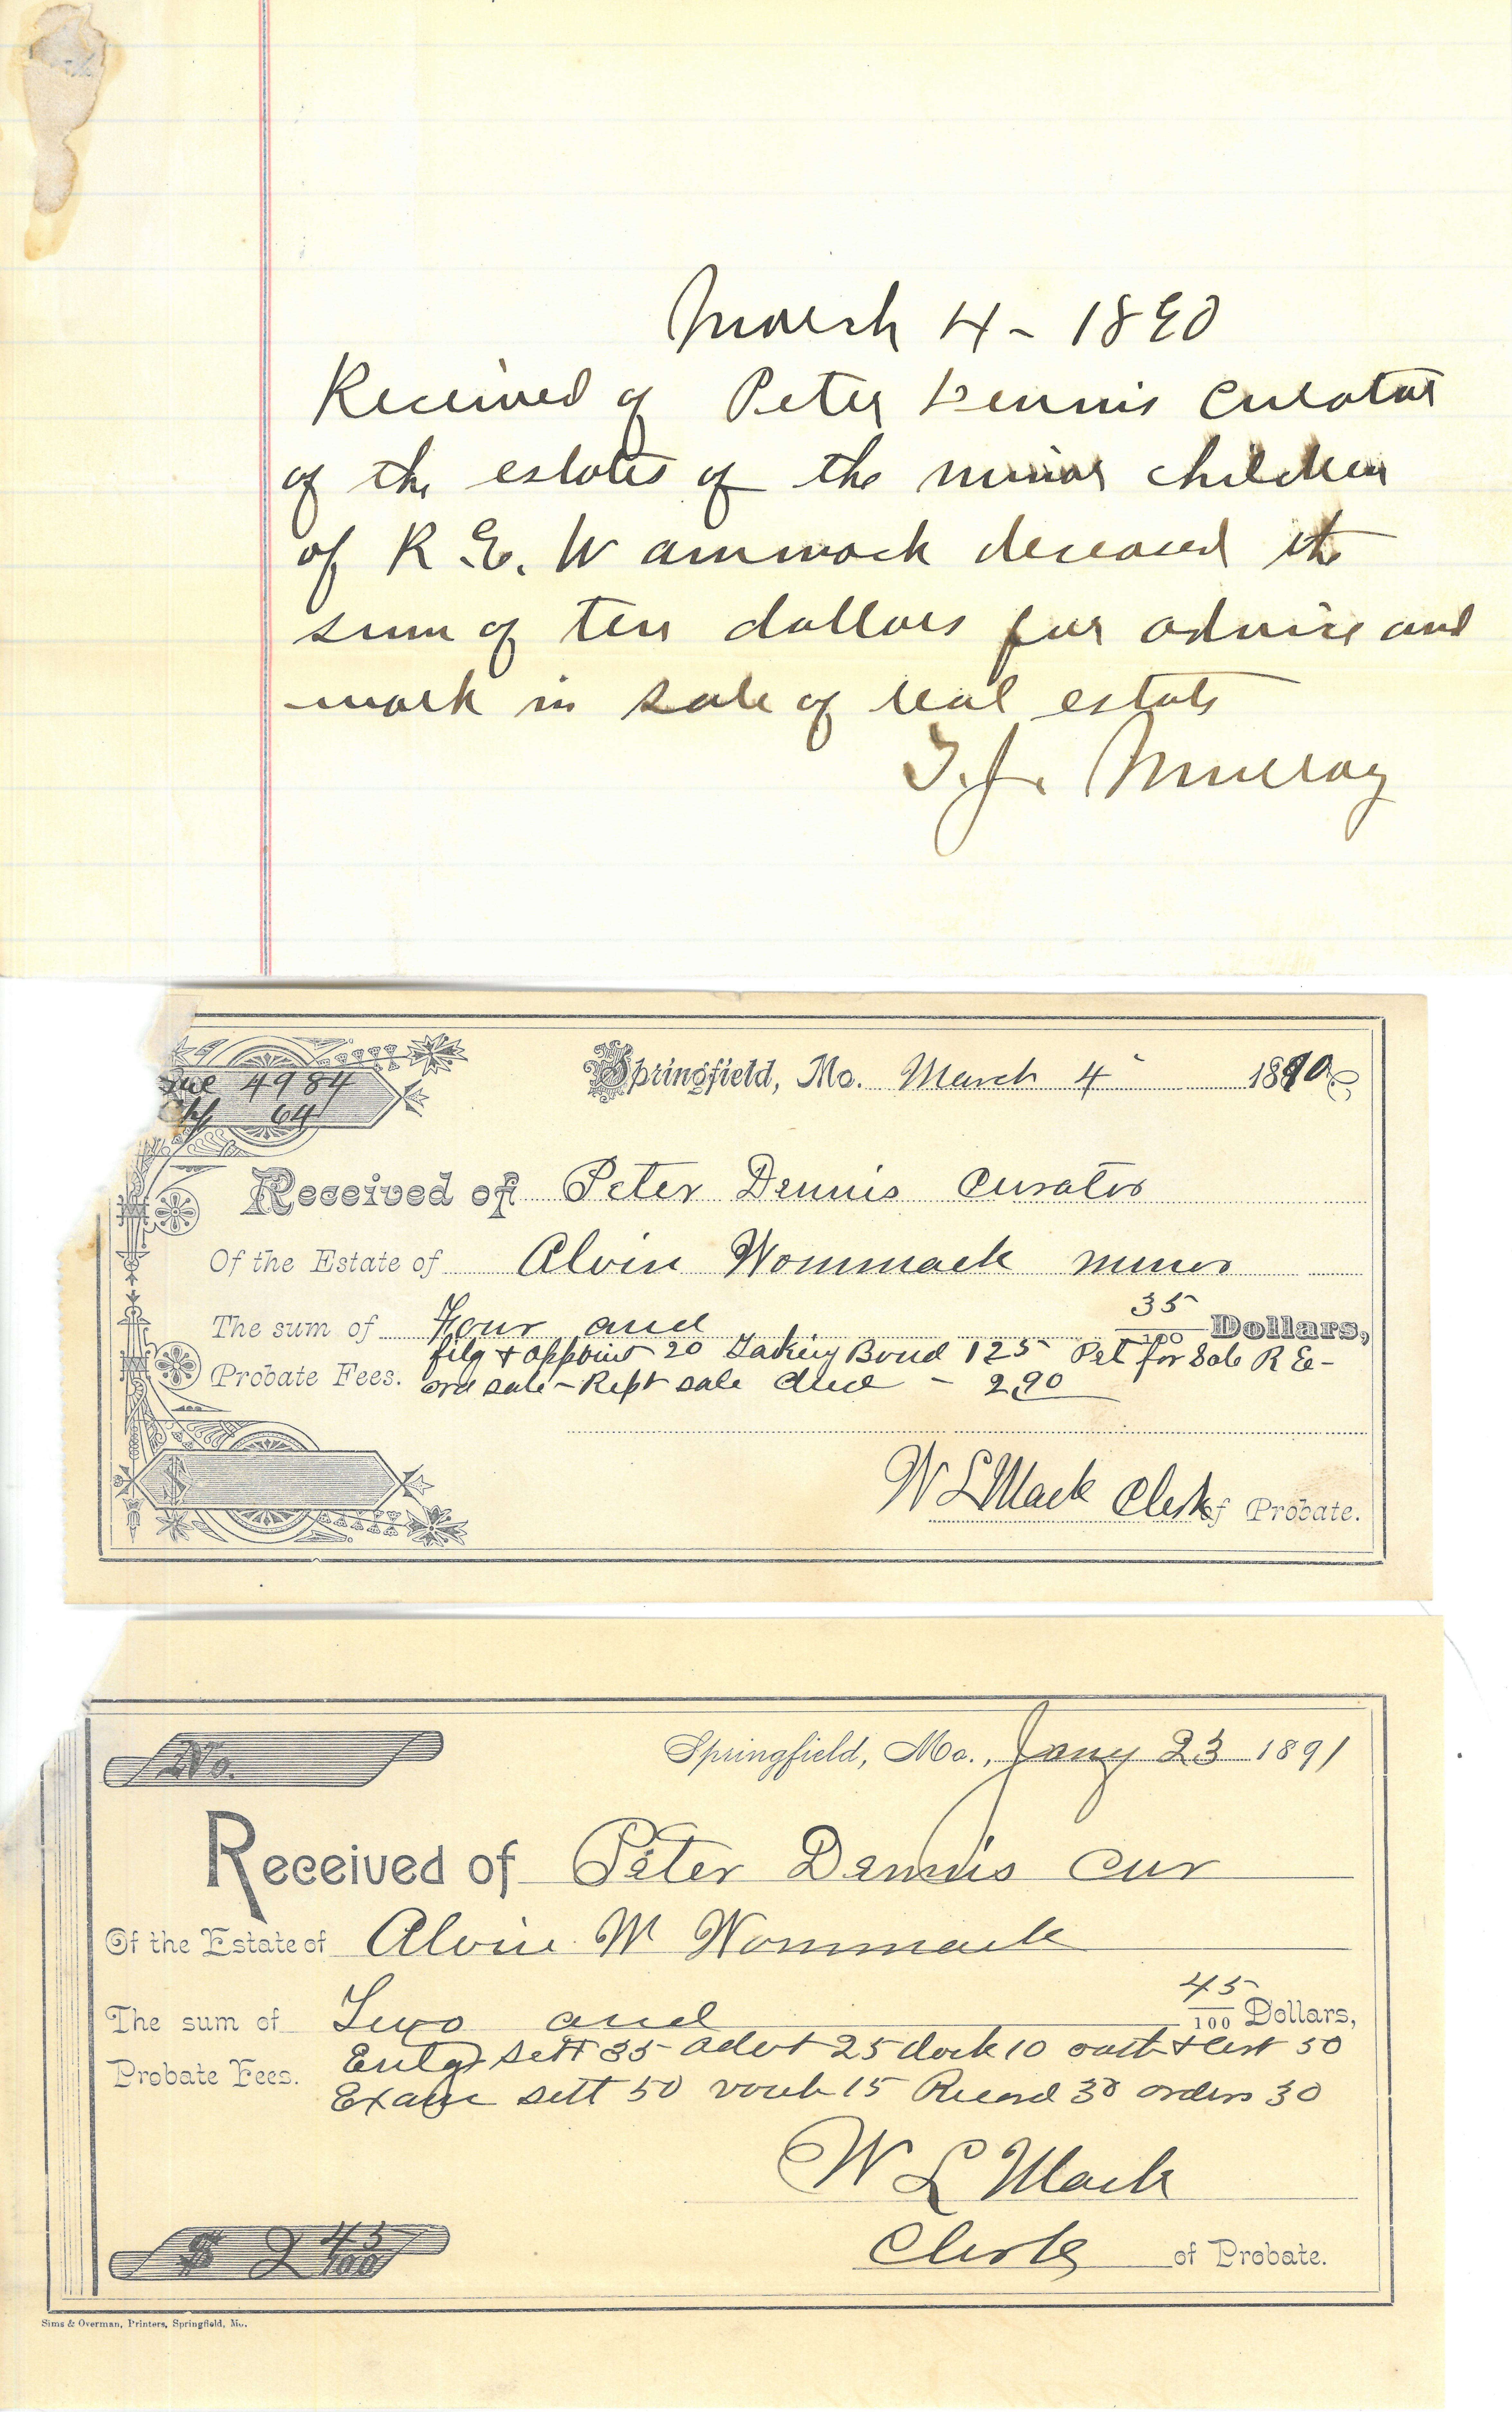 March 4 - 1890
Received of Peter Dennis curator
of the estates of the minor children
of R. E. Wammack deceased the
sum of ten dollars for advice and
work in sale of real estate
T. J. Murray
4984
64
Springfield, Mo. March 4 1890
Received of Peter Dennis Curator
Of the Estate of Alvin Wommack minor
The sum of Four and 35/100 Dollars,
filg & appoint 20 Taking Bond 125 Pet for Sale R E -
Probate Fees. ord sale - Rept sale deed - 2.90
$
W L Mack Clerk of Probate.
No.
Springfield, Mo., Jany 23 1891
Received of Peter Dennis cur
Of the Estate of Alvin W Wommack
The sum of Two and 45/100 Dollars,
Probate Fees. Entg sett 35 advt 25 dock 10 oath & cert 50
Exam sett 50 vouch 15 Record 30 orders 30
W L Mack
$ 2 45/100
Clerk of Probate.
Sims & Overman, Printers, Springfield, Mo.